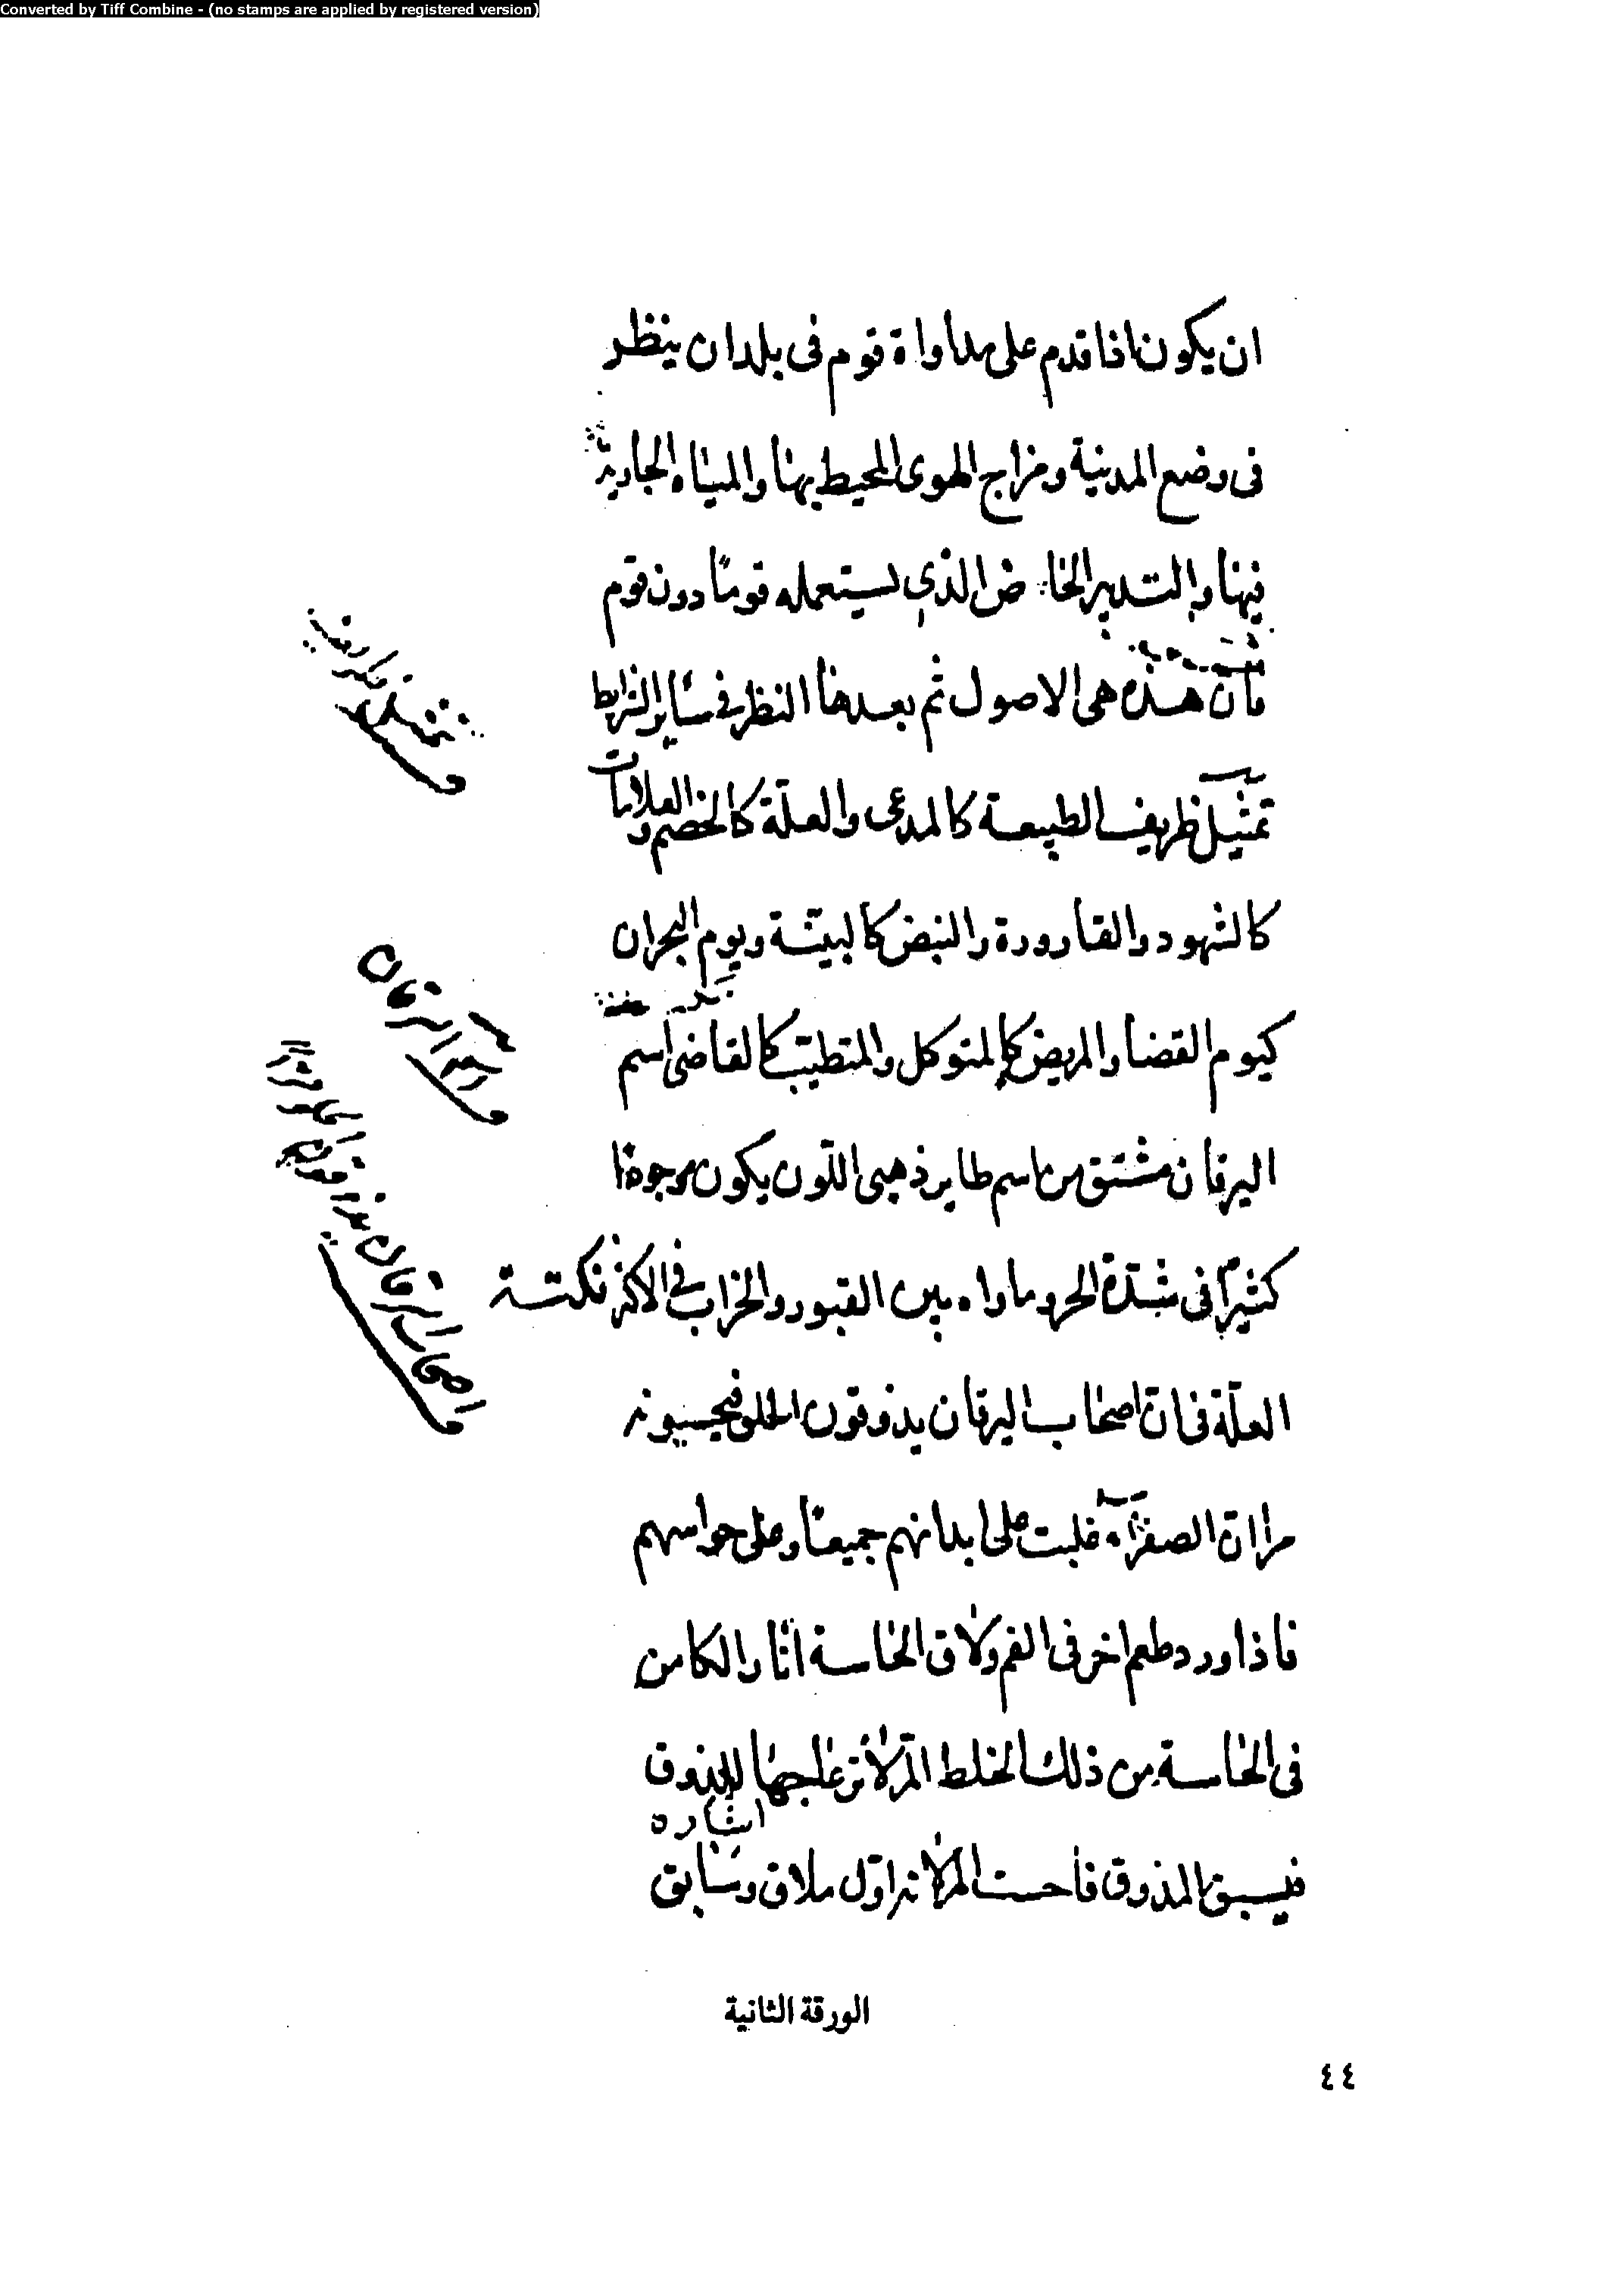 Converted by Tiff Combine - (no stamps are applied by registered version)
ان يكون اذا قدم على مداواة قوم فى بلدان ينظر
فى وضع المدينة ومزاج الهوى المحيط بها والمياه الجارية
فيها والتدبير الخاص الذى يستعمله قوما دون قوم
فان هذه هى الاصول ثم بعدها النظر فى ساير الشرايط
تمثيل ظريف الطبيعة كالمدعى والعلة كالخصم والعلامات
كالشهود والقارورة والنبض كالبينة ويوم البحران
كيوم القضا والمريض كالمتوكل والمتطبب كالقاضى اسم
اليرقان مشتق من اسم طاير ذهبى اللون يكون موجودا
كثيرًا فى شدة الحر وماواه بين القبور والخراب فى الاكثر نكتة
العلة فى ان اصحاب اليرقان يذوقون الحلو فيحسبونه
مرا ان الصفراء غلبت على ابدانهم جميعا وعلى حواسهم
فاذا ورد طعم اخر فى الفم ولاق الحاسة اثار الكامن
فى الحاسة من ذلك الخلط المر لانزعاجها للمذوق
اشاره
فيسبق المذوق فاحست المر لانه اول ملاق وسابق
اسم اليرقان
اصحاب اليرقان
الورقة الثانية
٤٤